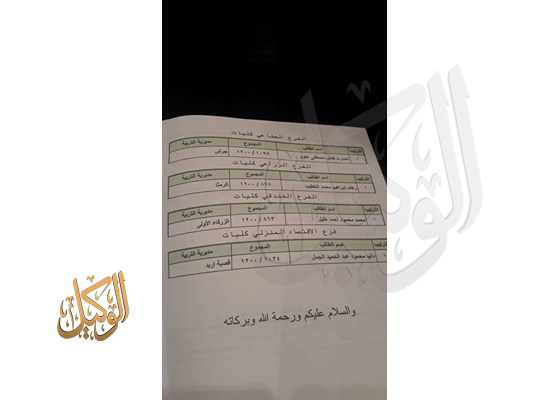 الفرع الصناعي كليات
الترتيب اسم الطالب المجموع مديرية التربية
١ كامل مصطفى علوم ١٠٩٧ / ١٢٠٠ جرش
الفرع الزراعي كليات
الترتيب اسم الطالب المجموع مديرية التربية
١ رهف ابراهيم محمد الخطيب ٨٧٨ / ١٢٠٠ الرمثا
الفرع الفندقي كليات
الترتيب اسم الطالب المجموع مديرية التربية
١ محمد محمود احمد خليل ٨٦٣ / ١٢٠٠ الزرقاء الأولى
فرع الاقتصاد المنزلي كليات
الترتيب اسم الطالب المجموع مديرية التربية
١ دانيا محمود عبد الحميد الجمل ١٠٢٤ / ١٢٠٠ قصبة اربد
والسلام عليكم ورحمة الله وبركاته
الوكيل
الوكيل